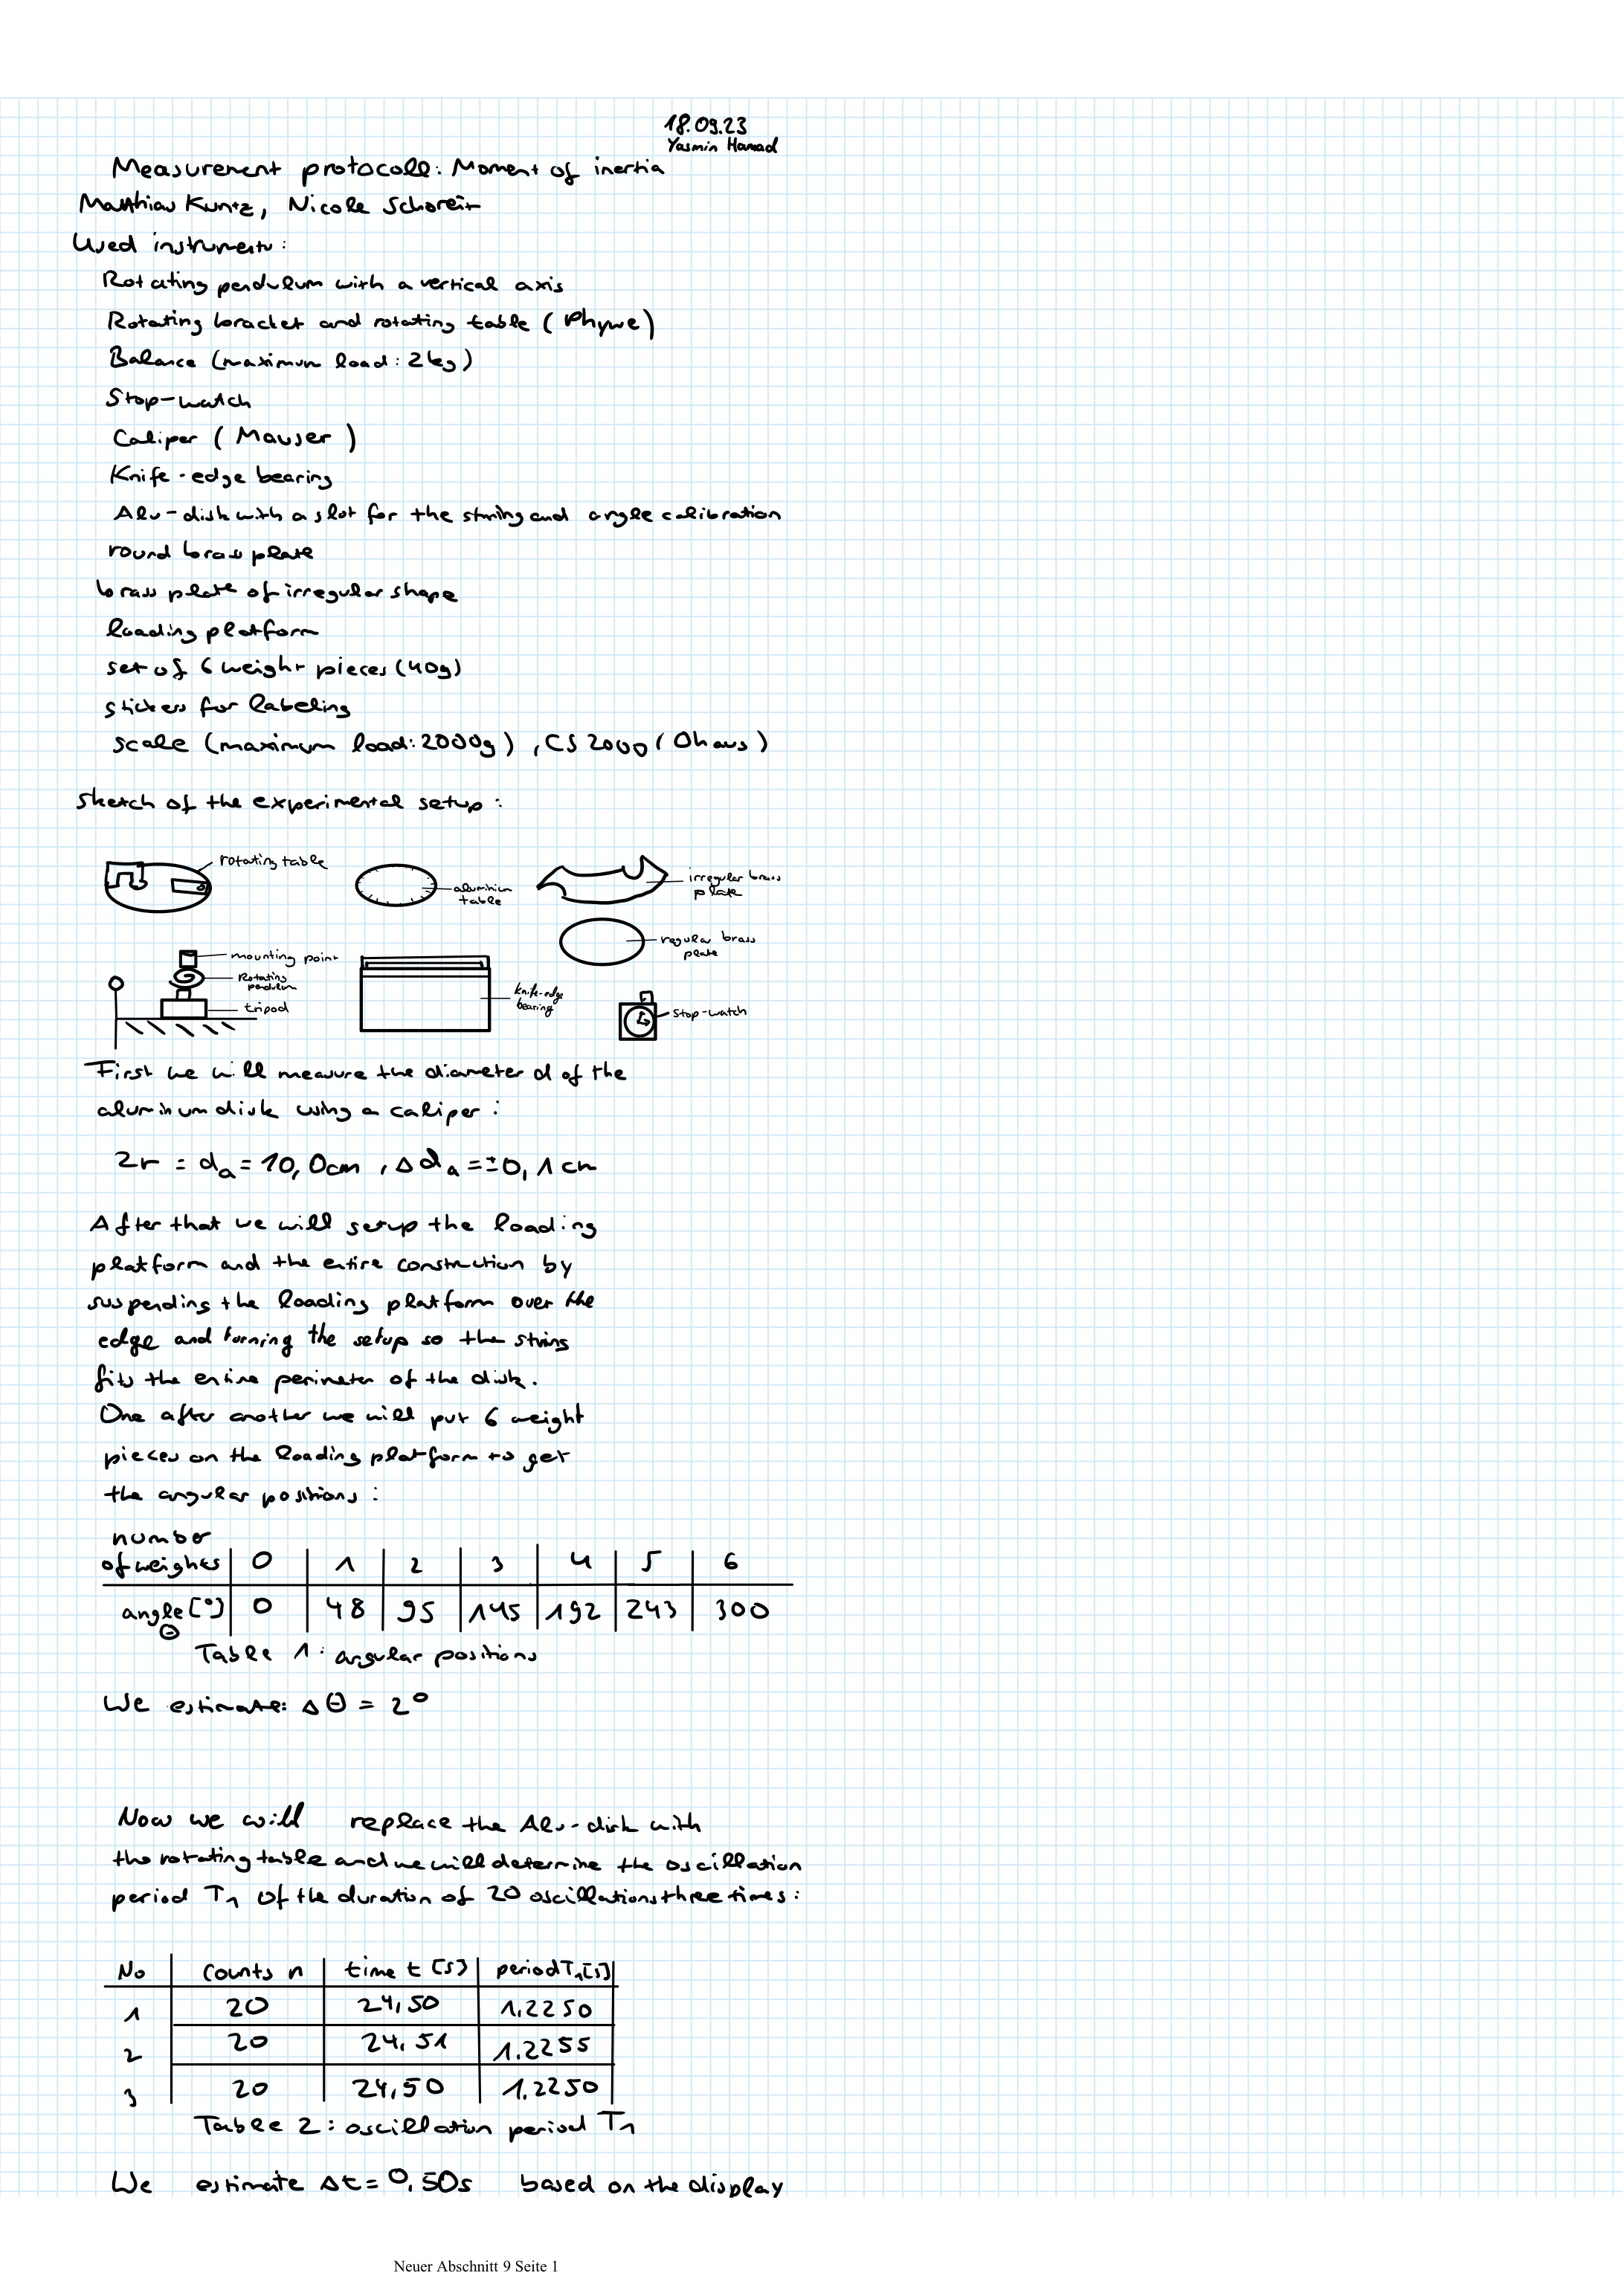 18.09.23
Yasmin Hamad
Measurement protocoll: Moment of inertia
Matthias Kuntz, Nicole Schoreit
Used instruments:
Rotating pendulum with a vertical axis
Rotating bracket and rotating table (Phywe)
Balance (maximum load: 2kg)
Stop-watch
Caliper (Mauser)
Knife-edge bearing
Alu-disk with a slot for the string and angle calibration
round brass plate
brass plate of irregular shape
loading platform
set of 6 weight pieces (40g)
stickers for labeling
scale (maximum load: 2000g), CS 2000 (Ohaus)
Sketch of the experimental setup:
rotating table
aluminium
table
irregular brass
plate
regular brass
plate
mounting point
Rotating
pendulum
tripod
knife-edge
bearing
stop-watch
First we will measure the diameter d of the
aluminum disk using a caliper:
2r = da = 10,0cm, Δda = ±0,1cm
After that we will setup the loading
platform and the entire construction by
suspending the loading platform over the
edge and turning the setup so the string
fits the entire perimeter of the disk.
One after another we will put 6 weight
pieces on the loading platform to get
the angular positions:
number
of weights | 0 | 1 | 2 | 3 | 4 | 5 | 6
angle [°] Θ | 0 | 48 | 95 | 145 | 192 | 243 | 300
Table 1: angular positions
We estimate: ΔΘ = 2°
Now we will replace the Alu-disk with
the rotating table and we will determine the oscillation
period T1 of the duration of 20 oscillations three times:
No | Counts n | time t [s] | period T1 [s]
1 | 20 | 24,50 | 1.2250
2 | 20 | 24,51 | 1.2255
3 | 20 | 24,50 | 1.2250
Table 2: oscillation period T1
We estimate Δt = 0,50s based on the display
Neuer Abschnitt 9 Seite 1